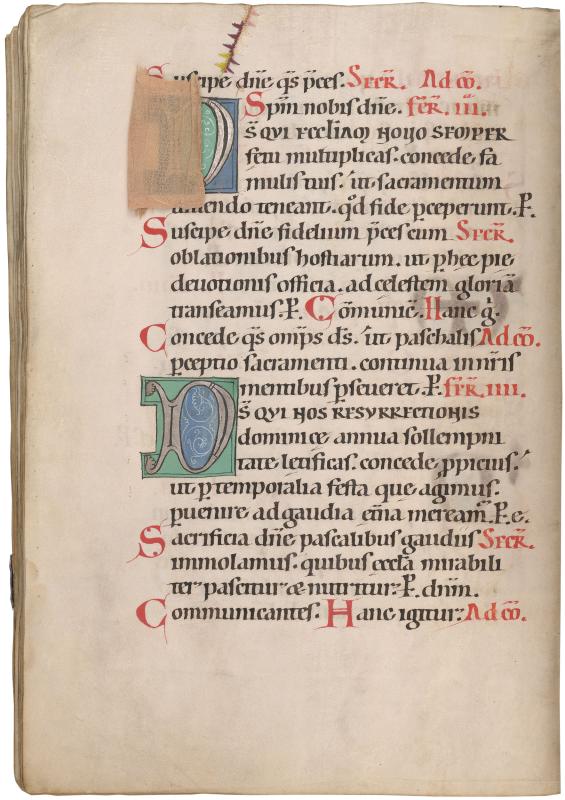 Suscipe dn̄e q̄s p̄ces. Secr̄. Ad cō.
Spm̄ nobis dn̄e. fer̄. iii.
s̄ qui ecclīam novo semper
fetu multiplicas. concede fa
mulis tuis. ut sacramentum
uiuendo teneant. qd̄ fide p̄ceperunt. P̄.
Suscipe dn̄e fidelium p̄ces cum Secr̄.
oblationibus hostiarum. ut p̄ hec pie
deuotionis officia. ad celestem gloriā
transeamus. P̄. Cōmunic̄. Hanc g̣.
Concede q̄s omp̄s ds̄. ut paschalis Ad cō.
p̄ceptio sacramenti. continua in nr̄is
mentibus p̄seueret. P̄. fer̄. iiii.
s̄ qui nos resurrectionis
dominice annua sollempni
tate letificas. concede p̄picius.
ut p̄ temporalia festa que agimus.
p̄uenire ad gaudia et̄na meream̄. P̄. e.
Sacrificia dn̄e pascalibus gaudiis Secr̄.
immolamus. quibus eccl̄a mirabili
ter pascitur & nutritur. P̄. dn̄m.
Communicantes. Hanc igitur. Ad cō.